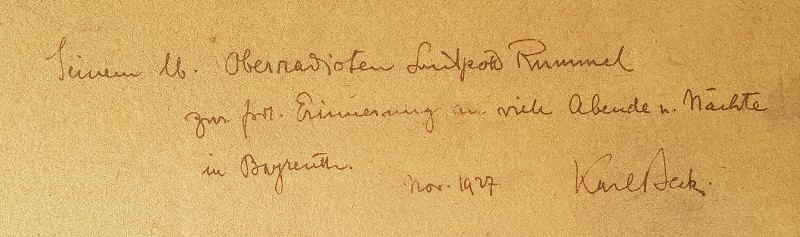 Seinem lb. Oberradioten Luitpold Rummel
zur frdl. Erinnerung an viele Abende u. Nächte
in Bayreuth.
Nov. 1927 Karl